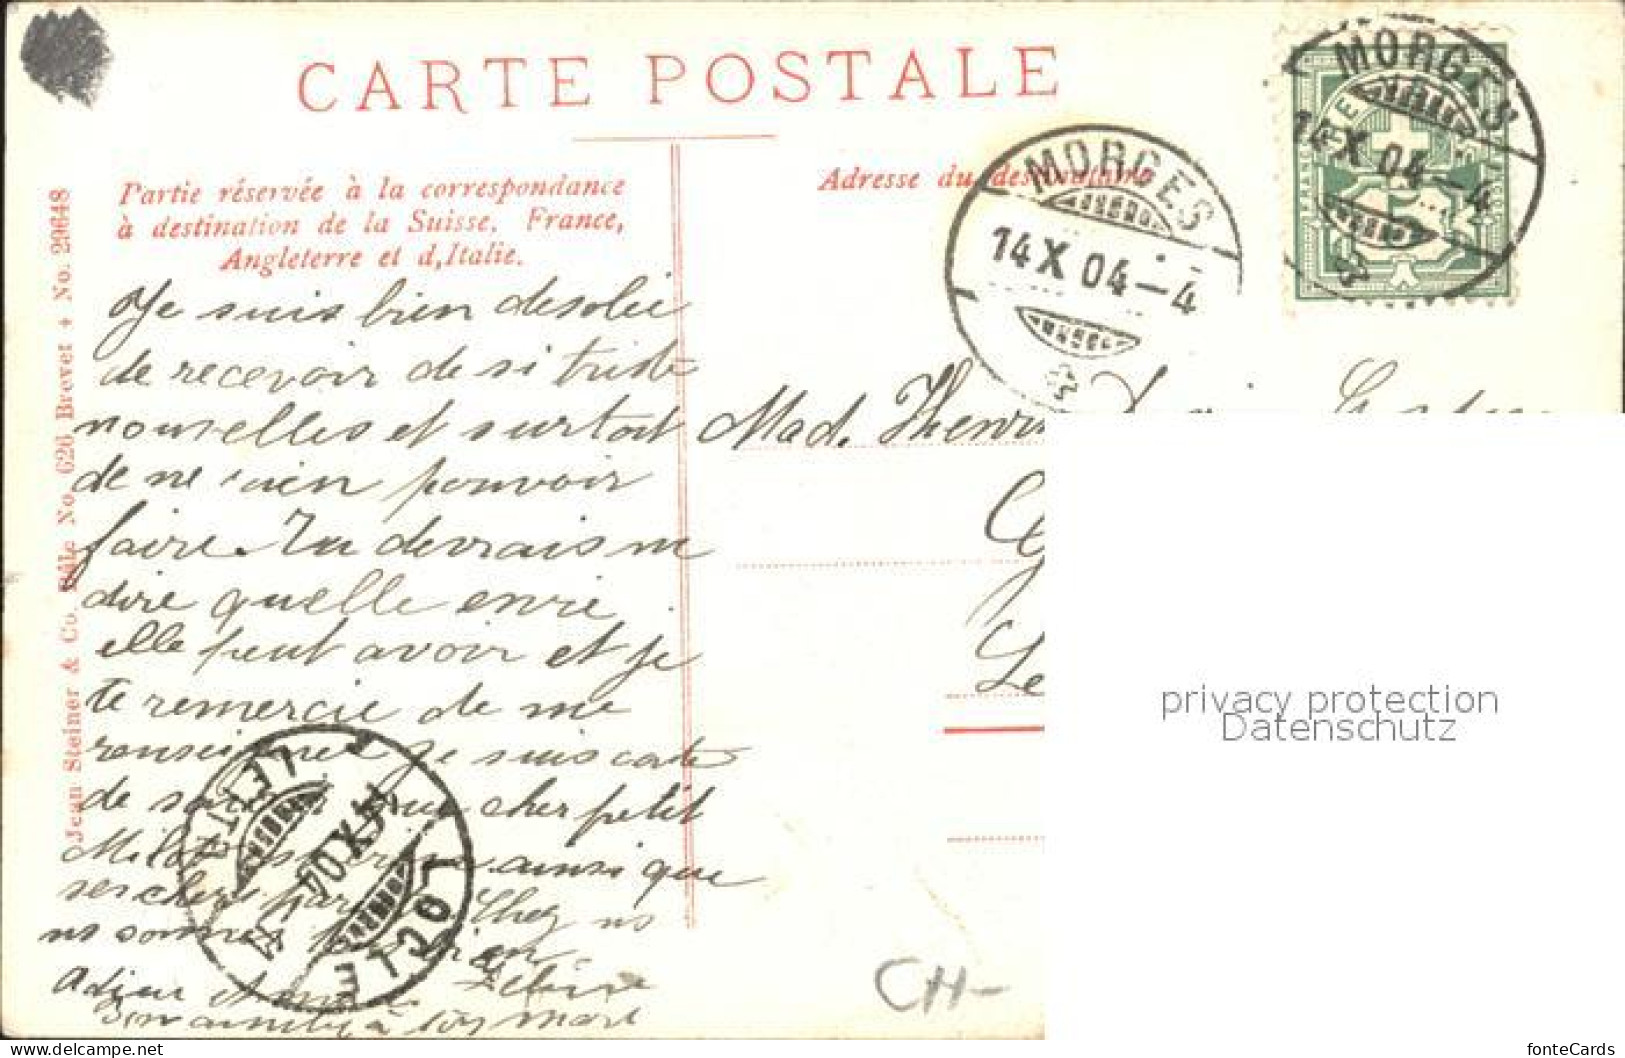 CARTE POSTALE
Partie réservée à la correspondance
à destination de la Suisse, France,
Angleterre et d,Italie.
Adresse du destinataire
Jean Steiner & Co. Bâle No. 626 Brevet + No. 23648
MORGES
14 X 04 – 4
MORGES
14 X 04 – 4
HELVETIA
FRANCO
5
Je suis bien desolée
de recevoir de si triste
nouvelles et surtout
de ne rien pouvoir
faire. Tu devrais me
dire quelle envie
elle peut avoir et je
te remercie de me
renseigner je suis
de cher petit
ainsi que
ses chers Chez ns
ns sommes bien
Adieu et
à ton Mari
LOCLE
14 X 04
LETTR
Mad. Henri
Le
CH-
privacy protection
Datenschutz
www.delcampe.net
fonteCards